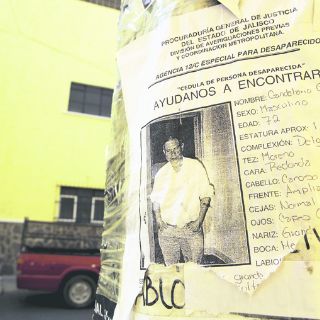 PROCURADURÍA GENERAL DE JUSTICIA
DEL ESTADO DE JALISCO
DIVISIÓN DE AVERIGUACIONES PREVIAS
Y COORDINACIÓN METROPOLITANA.
AGENCIA 12/C ESPECIAL PARA DESAPARECIDO
"CEDULA DE PERSONA DESAPARECIDA"
AYUDANOS A ENCONTRAR
NOMBRE: Candelario
SEXO: Masculino
EDAD: 72
ESTATURA APROX: 1
COMPLEXIÓN: Delg
TEZ: Moreno
CARA: Redonda
CABELLO: Canoso
FRENTE: Amplia
CEJAS: Normal
OJOS:
NARIZ:
BOCA: Me
LABIO
ABLO